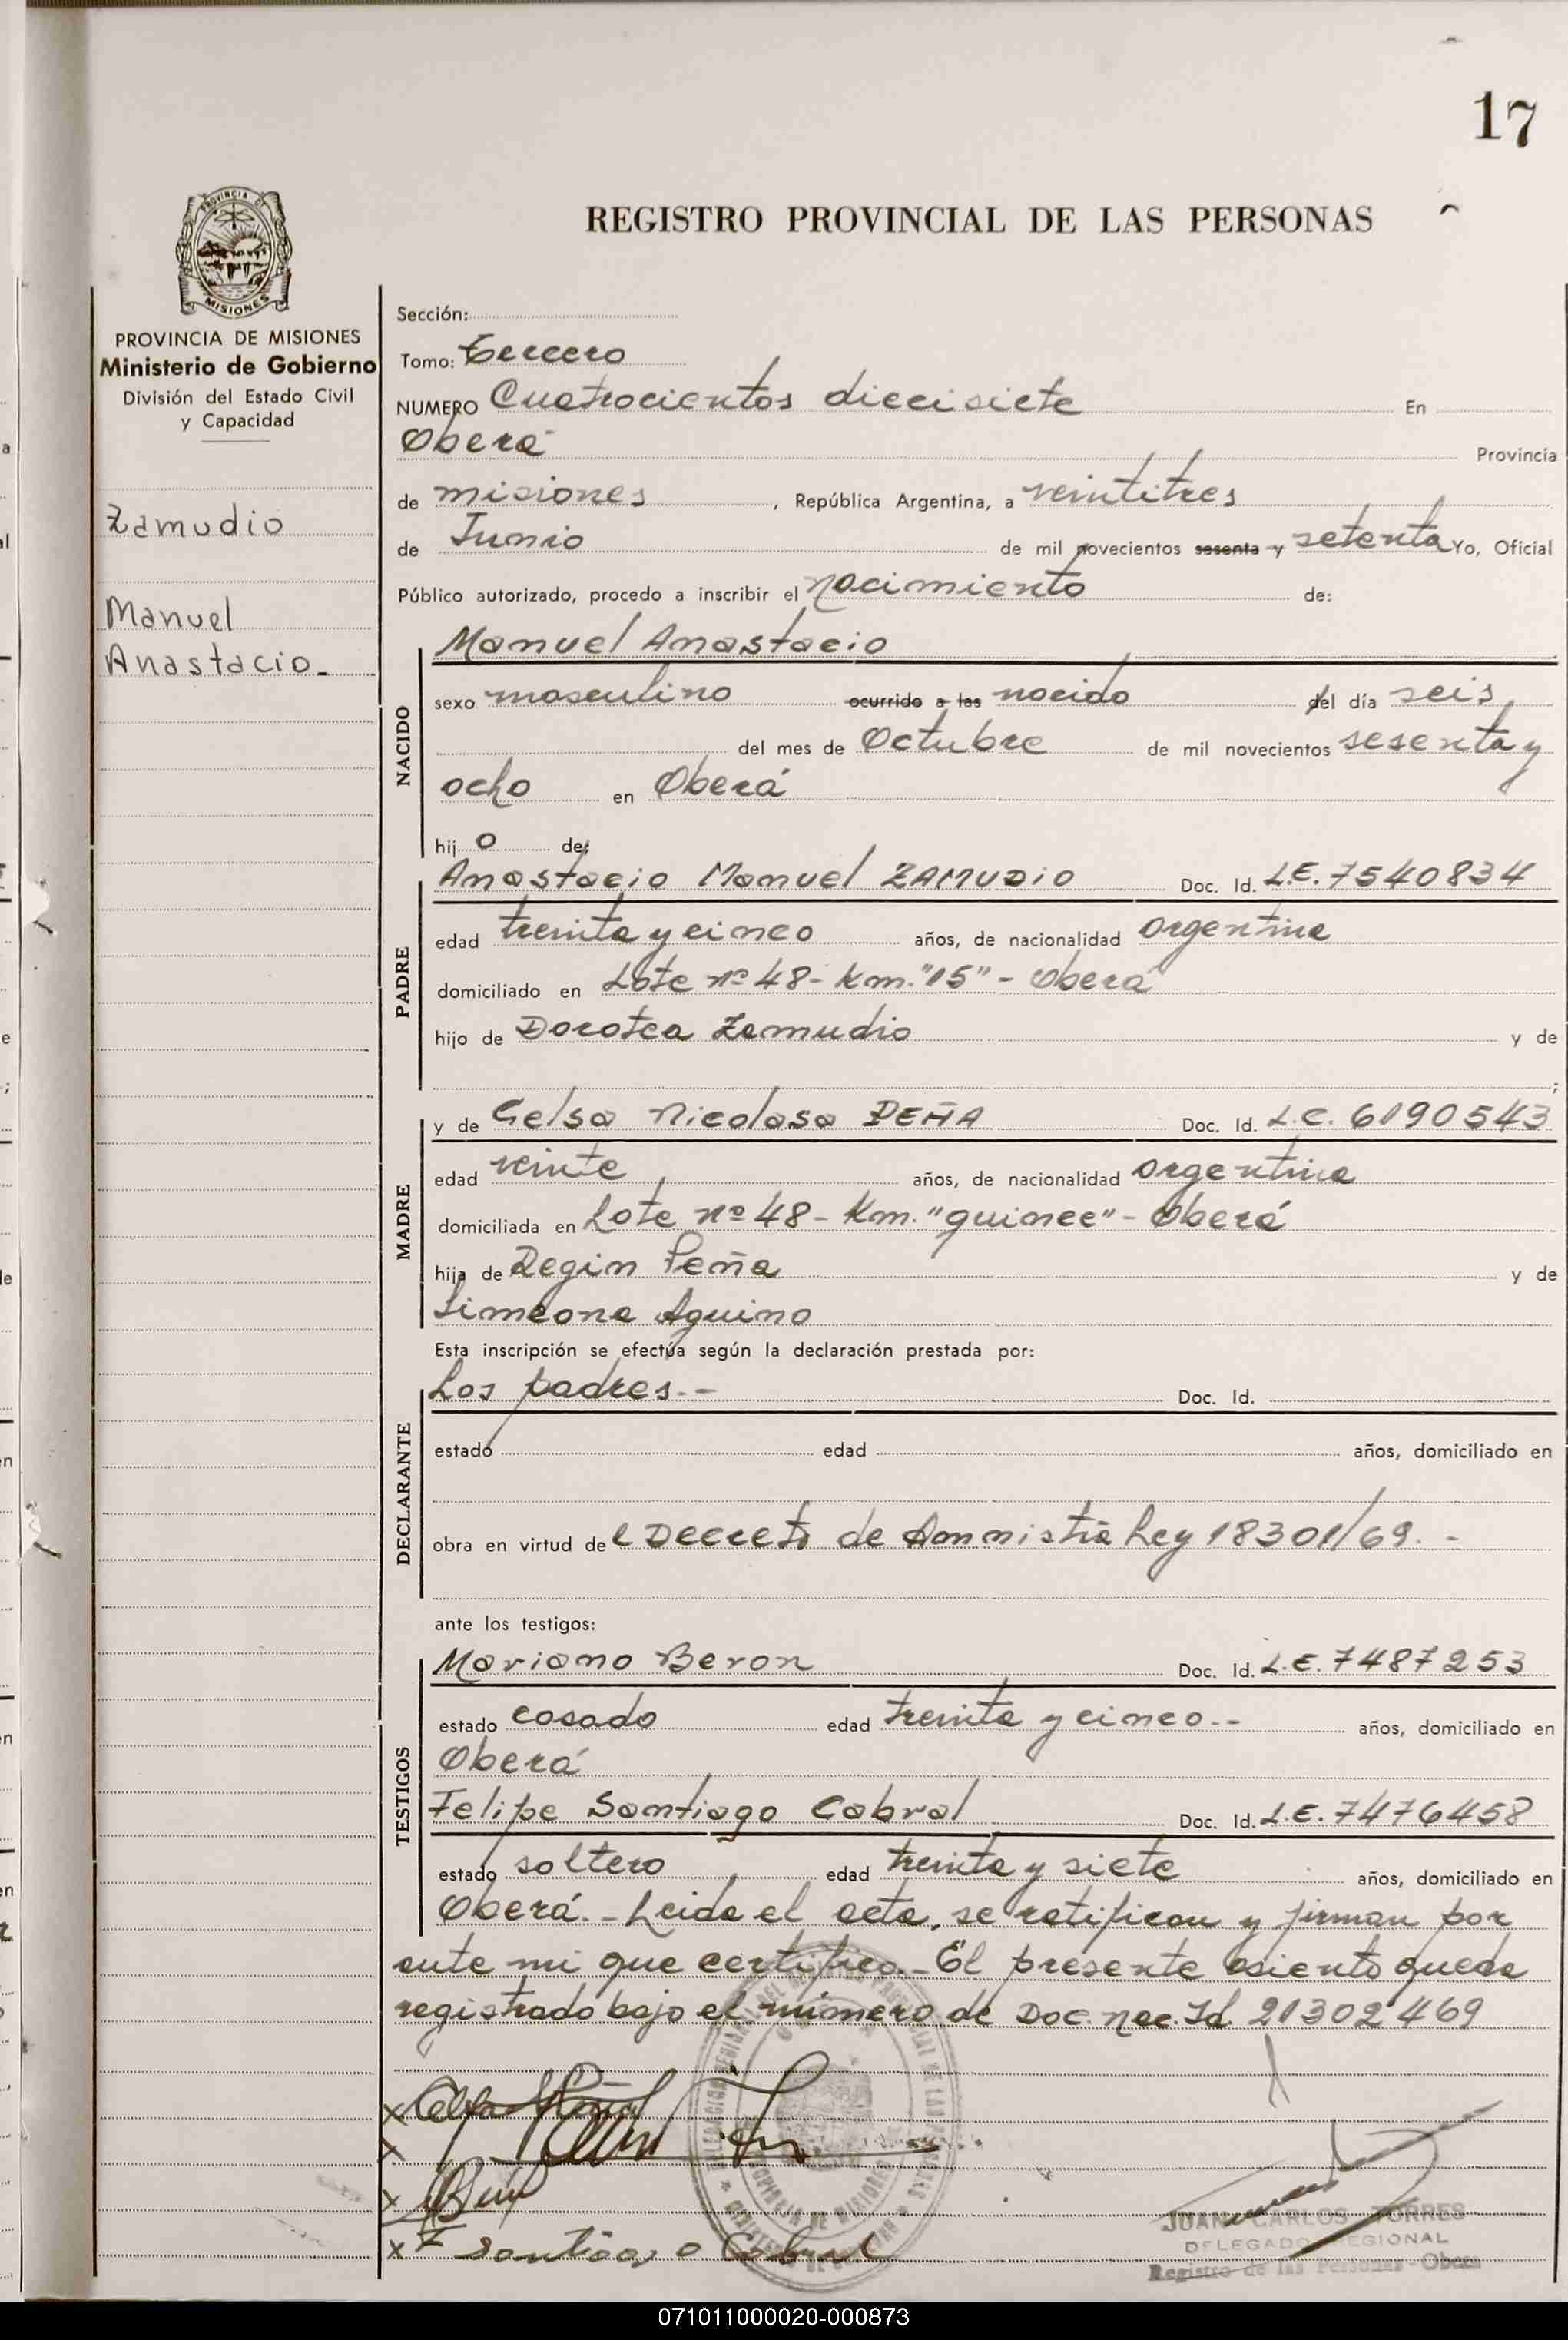 17
REGISTRO PROVINCIAL DE LAS PERSONAS
PROVINCIA DE MISIONES
Ministerio de Gobierno
División del Estado Civil
y Capacidad
Zamudio
Manuel
Anastacio
Sección:
Tomo: Tercero
NUMERO Cuatrocientos diecisiete En
Oberá Provincia
de misiones, República Argentina, a veintitres
de Junio de mil novecientos sesenta y setenta Yo, Oficial
Público autorizado, procedo a inscribir el nacimiento de:
NACIDO
Manuel Anastacio
sexo masculino ocurrido a las nacido del día seis
del mes de Octubre de mil novecientos sesenta y
ocho en Oberá
hijo de:
PADRE
Anastacio Manuel ZAMUDIO Doc. Id. L.E. 7540834
edad treinta y cinco años, de nacionalidad argentina
domiciliado en Lote nº 48- Km. "15" - Oberá
hijo de Dorotea Zamudio y de
;
MADRE
y de Celsa Nicolasa PEÑA Doc. Id. L.C. 6190543
edad veinte años, de nacionalidad argentina
domiciliada en Lote nº 48- Km. "quince" - Oberá
hija de Regin Peña y de
Simeona Aquino
Esta inscripción se efectúa según la declaración prestada por:
DECLARANTE
Los padres.- Doc. Id.
estado edad años, domiciliado en
obra en virtud del Decreto de Ammistia Ley 18301/69.-
ante los testigos:
TESTIGOS
Mariano Beron Doc. Id. L.E. 7487253
estado casado edad treinta y cinco.- años, domiciliado en
Oberá
Felipe Santiago Cabral Doc. Id. L.E. 7476458
estado soltero edad treinta y siete años, domiciliado en
Oberá.- Leida el acta, se ratifican y firman por
ante mi que certifico.- El presente asiento queda
registrado bajo el número de Doc. nac. Id. 21302469
Santiago Cabral
JUAN CARLOS TORRES
DELEGADO REGIONAL
Registro de las Personas - Obera
071011000020-000873